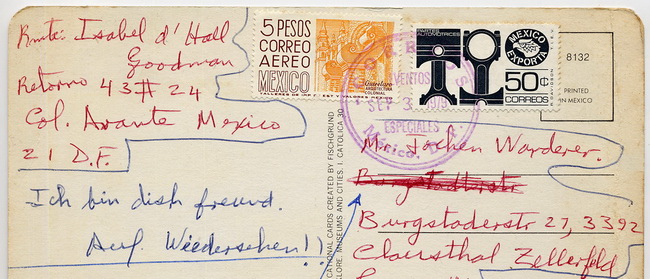 Rmte: Isabel d' Hall
Goodman
Retorno 43 # 24
Col. Avante Mexico
21 D.F.
Ich bin dish freund.
Auf Wiedersehen!!
5 PESOS
CORREO
AEREO
MEXICO
Querétaro
ARQUITECTURA
COLONIAL
CORREOS
EVENTOS
SEP 3 1979
ESPECIALES
México,
PARTES
AUTOMOTRICES
MEXICO
EXPORTA
50¢
CORREOS
8132
PRINTED
IN MEXICO
CATIONAL CARDS CREATED BY FISCHGRUND
LORE, MUSEUMS AND CITIES. I. CATOLICA 30
M. Jochen Warderer.
Burgstadterstr
Burgstaderstr 27, 3392
Clausthal Zellerfeld